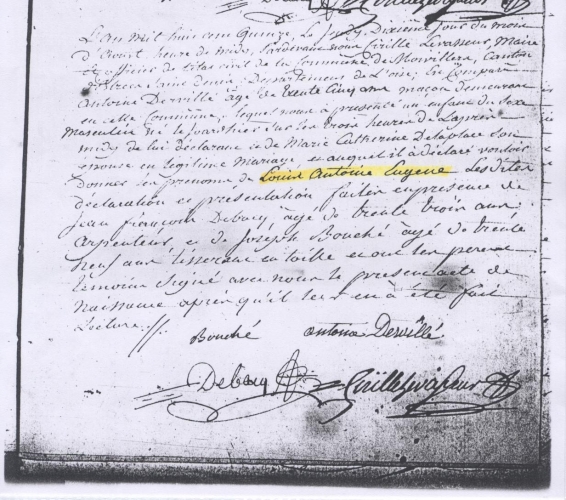 L'An mil huit cent Quinze, Le Dixieme jour du mois
d'Aout heure de midy, Pardevant nous Cirille Levasseur, Maire
et officier de l'état civil de la Commune de Monvillers, Canton
Département de L'oise, Est Comparu
Antoine Dervillé âgé de trente Cinq ans maçon demeurant
en cette Commune, lequel nous a présenté un enfant du Sexe
masculin né le jour d'hier sur les trois heures de L'apres
midy de lui déclarant et de Marie Catherine Delaplace son
épouse en légitime Mariage et auquel il a déclaré vouloir
donner les prenoms de Louis Antoine Eugene Les dites
déclaration et présentation faites en présence de
jean françois Debacq âgé de trente trois ans
arpenteur et de joseph Bouché âgé de trente
neuf ans tisserand en toille et ont les pere et
temoins signé avec nous le présent acte de
Naissance apres qu'il leur en a été fait
Lecture.//.
Bouché antoine Dervillé
Debacq Cirille Levasseur